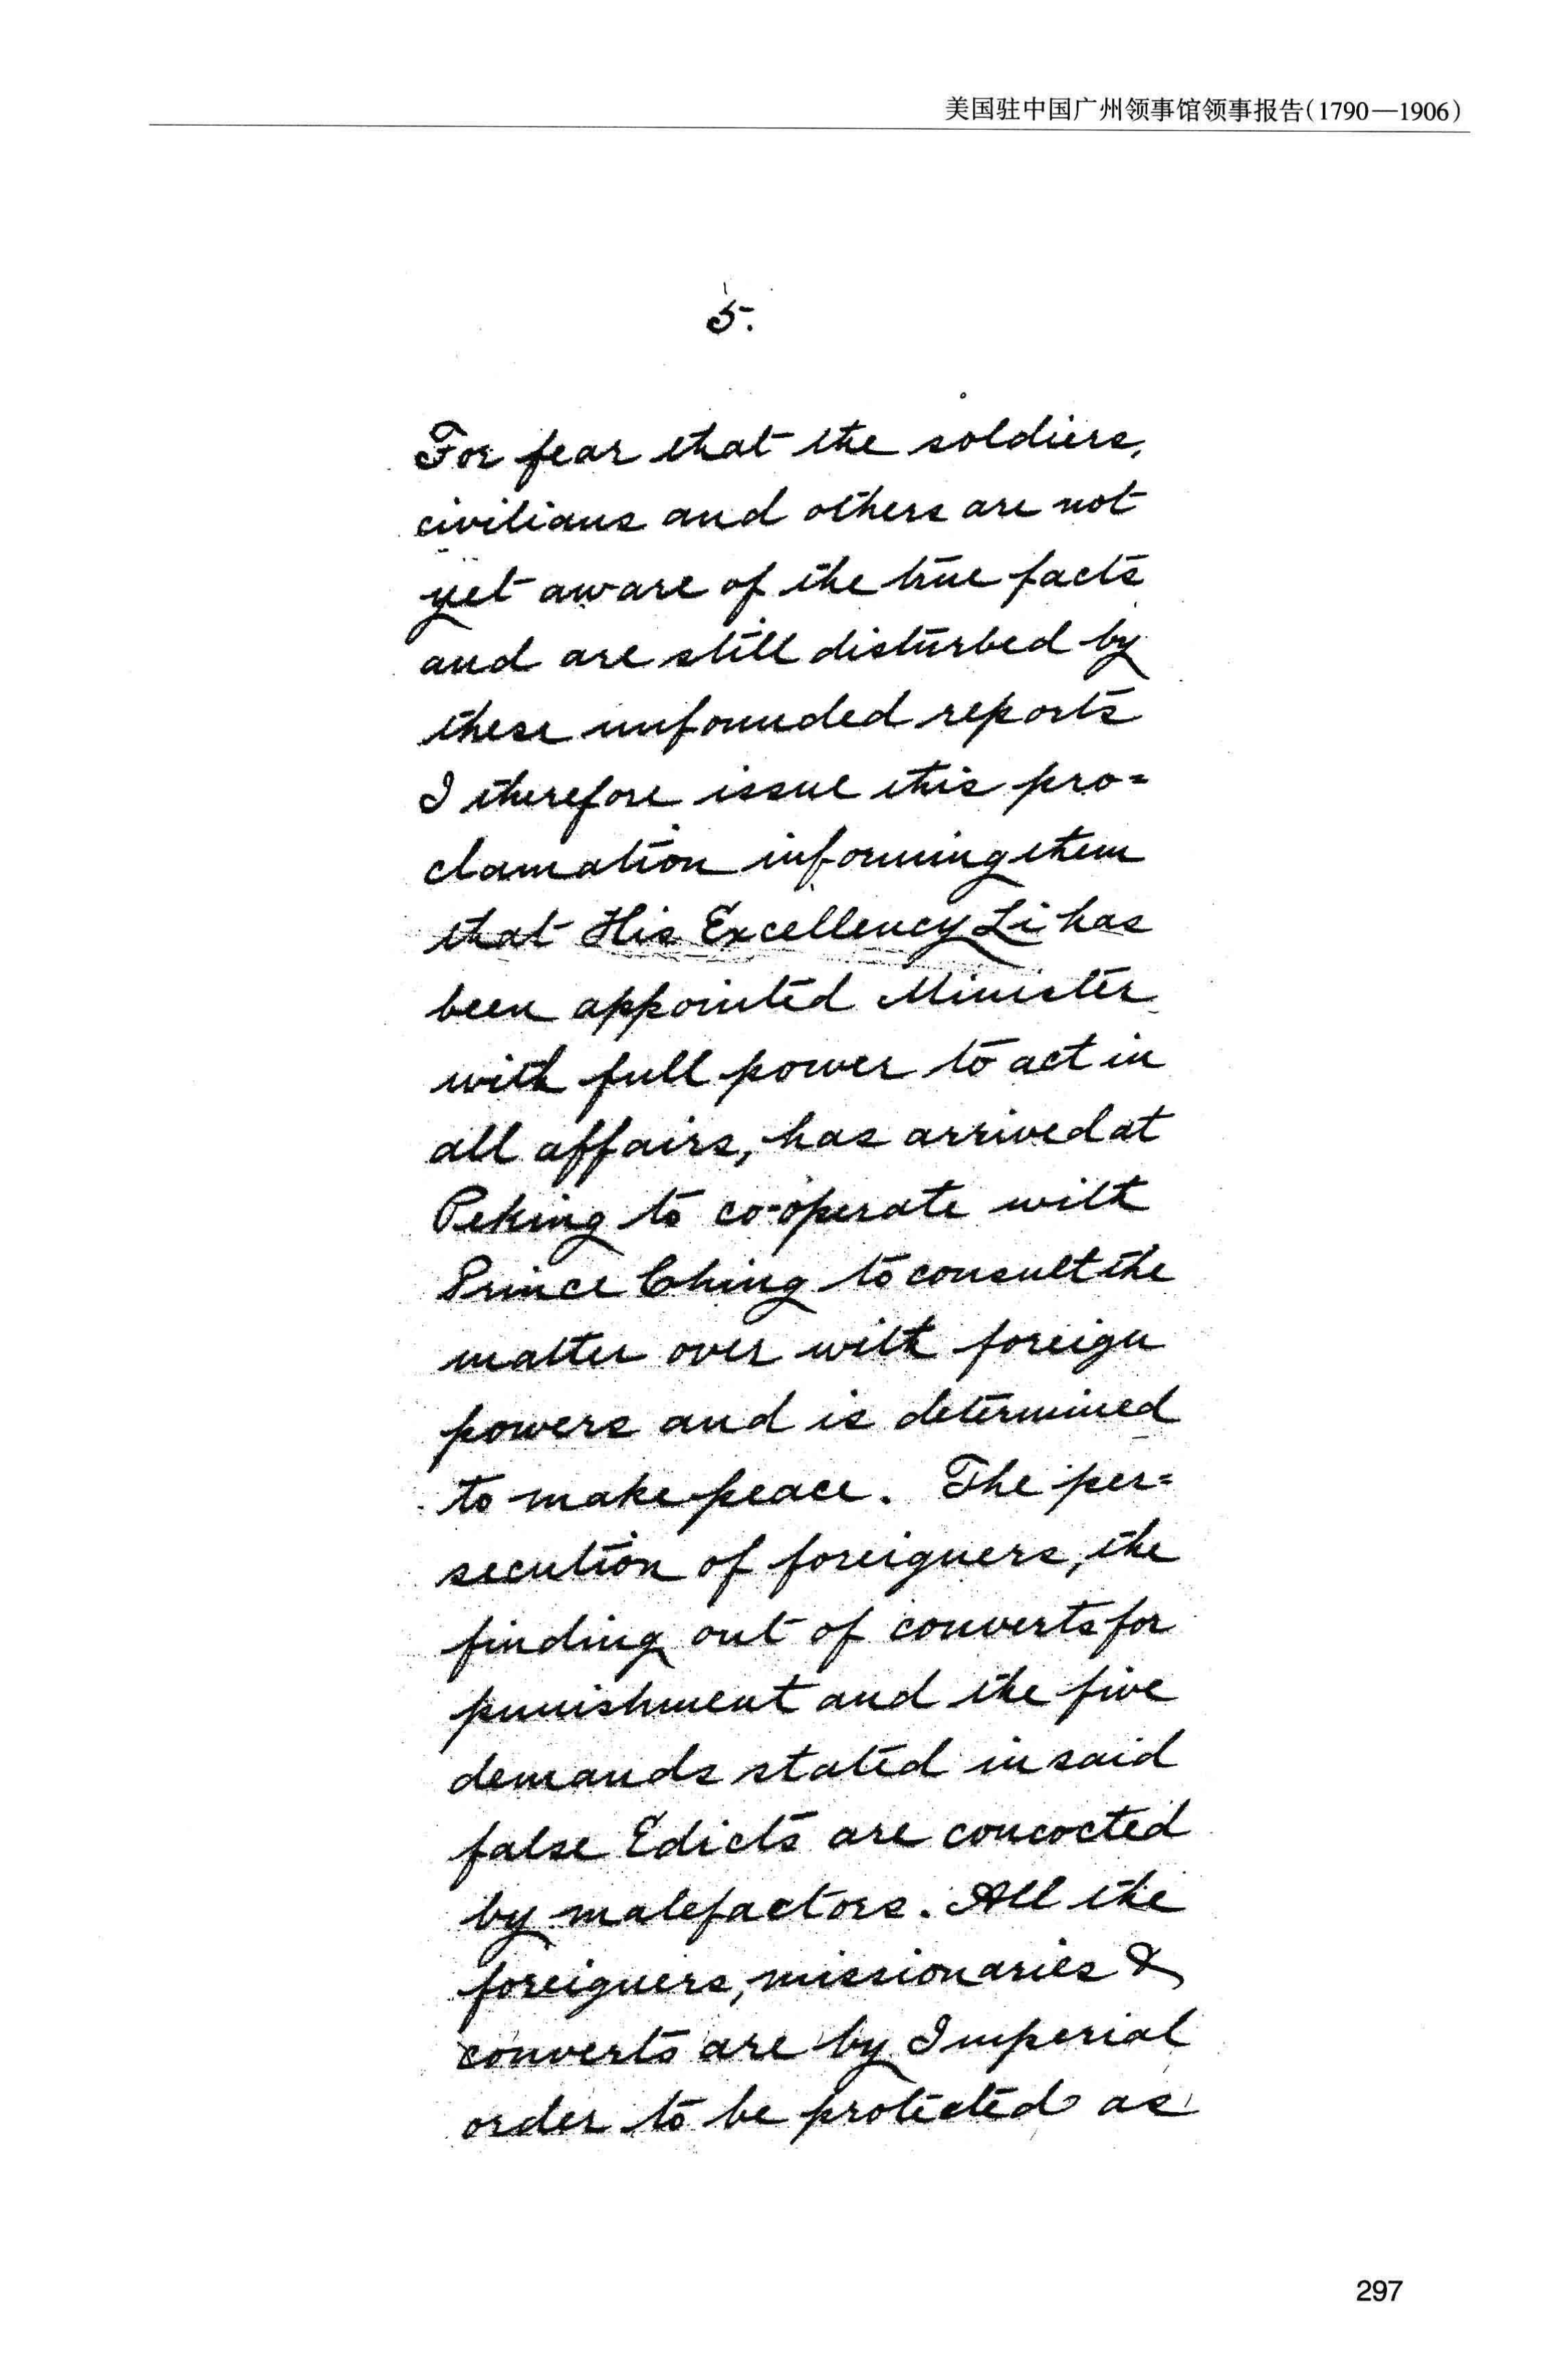 美国驻中国广州领事馆领事报告(1790—1906)
5.
For fear that the soldiers,
civilians and others are not
yet aware of the true facts
and are still disturbed by
these unfounded reports
I therefore issue this pro=
clamation informing them
that His Excellency Li has
been appointed Minister
with full power to act in
all affairs, has arrived at
Peking to co-operate with
Prince Ching to consult the
matter over with foreign
powers and is determined
to make peace. The per=
secution of foreigners, the
finding out of converts for
punishment and the five
demands stated in said
false Edicts are concocted
by malefactors. All the
foreigners, missionaries &
converts are by Imperial
order to be protected as
297